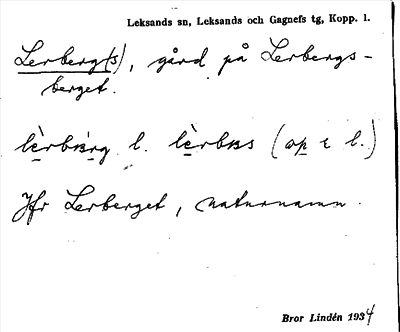 Leksands sn, Leksands och Gagnefs tg, Kopp. l.
Lerberg(s), gård på Lerbergs-
berget.
l. (op i l.)
Jfr Lerberget, naturnamn.
Bror Lindén 1934